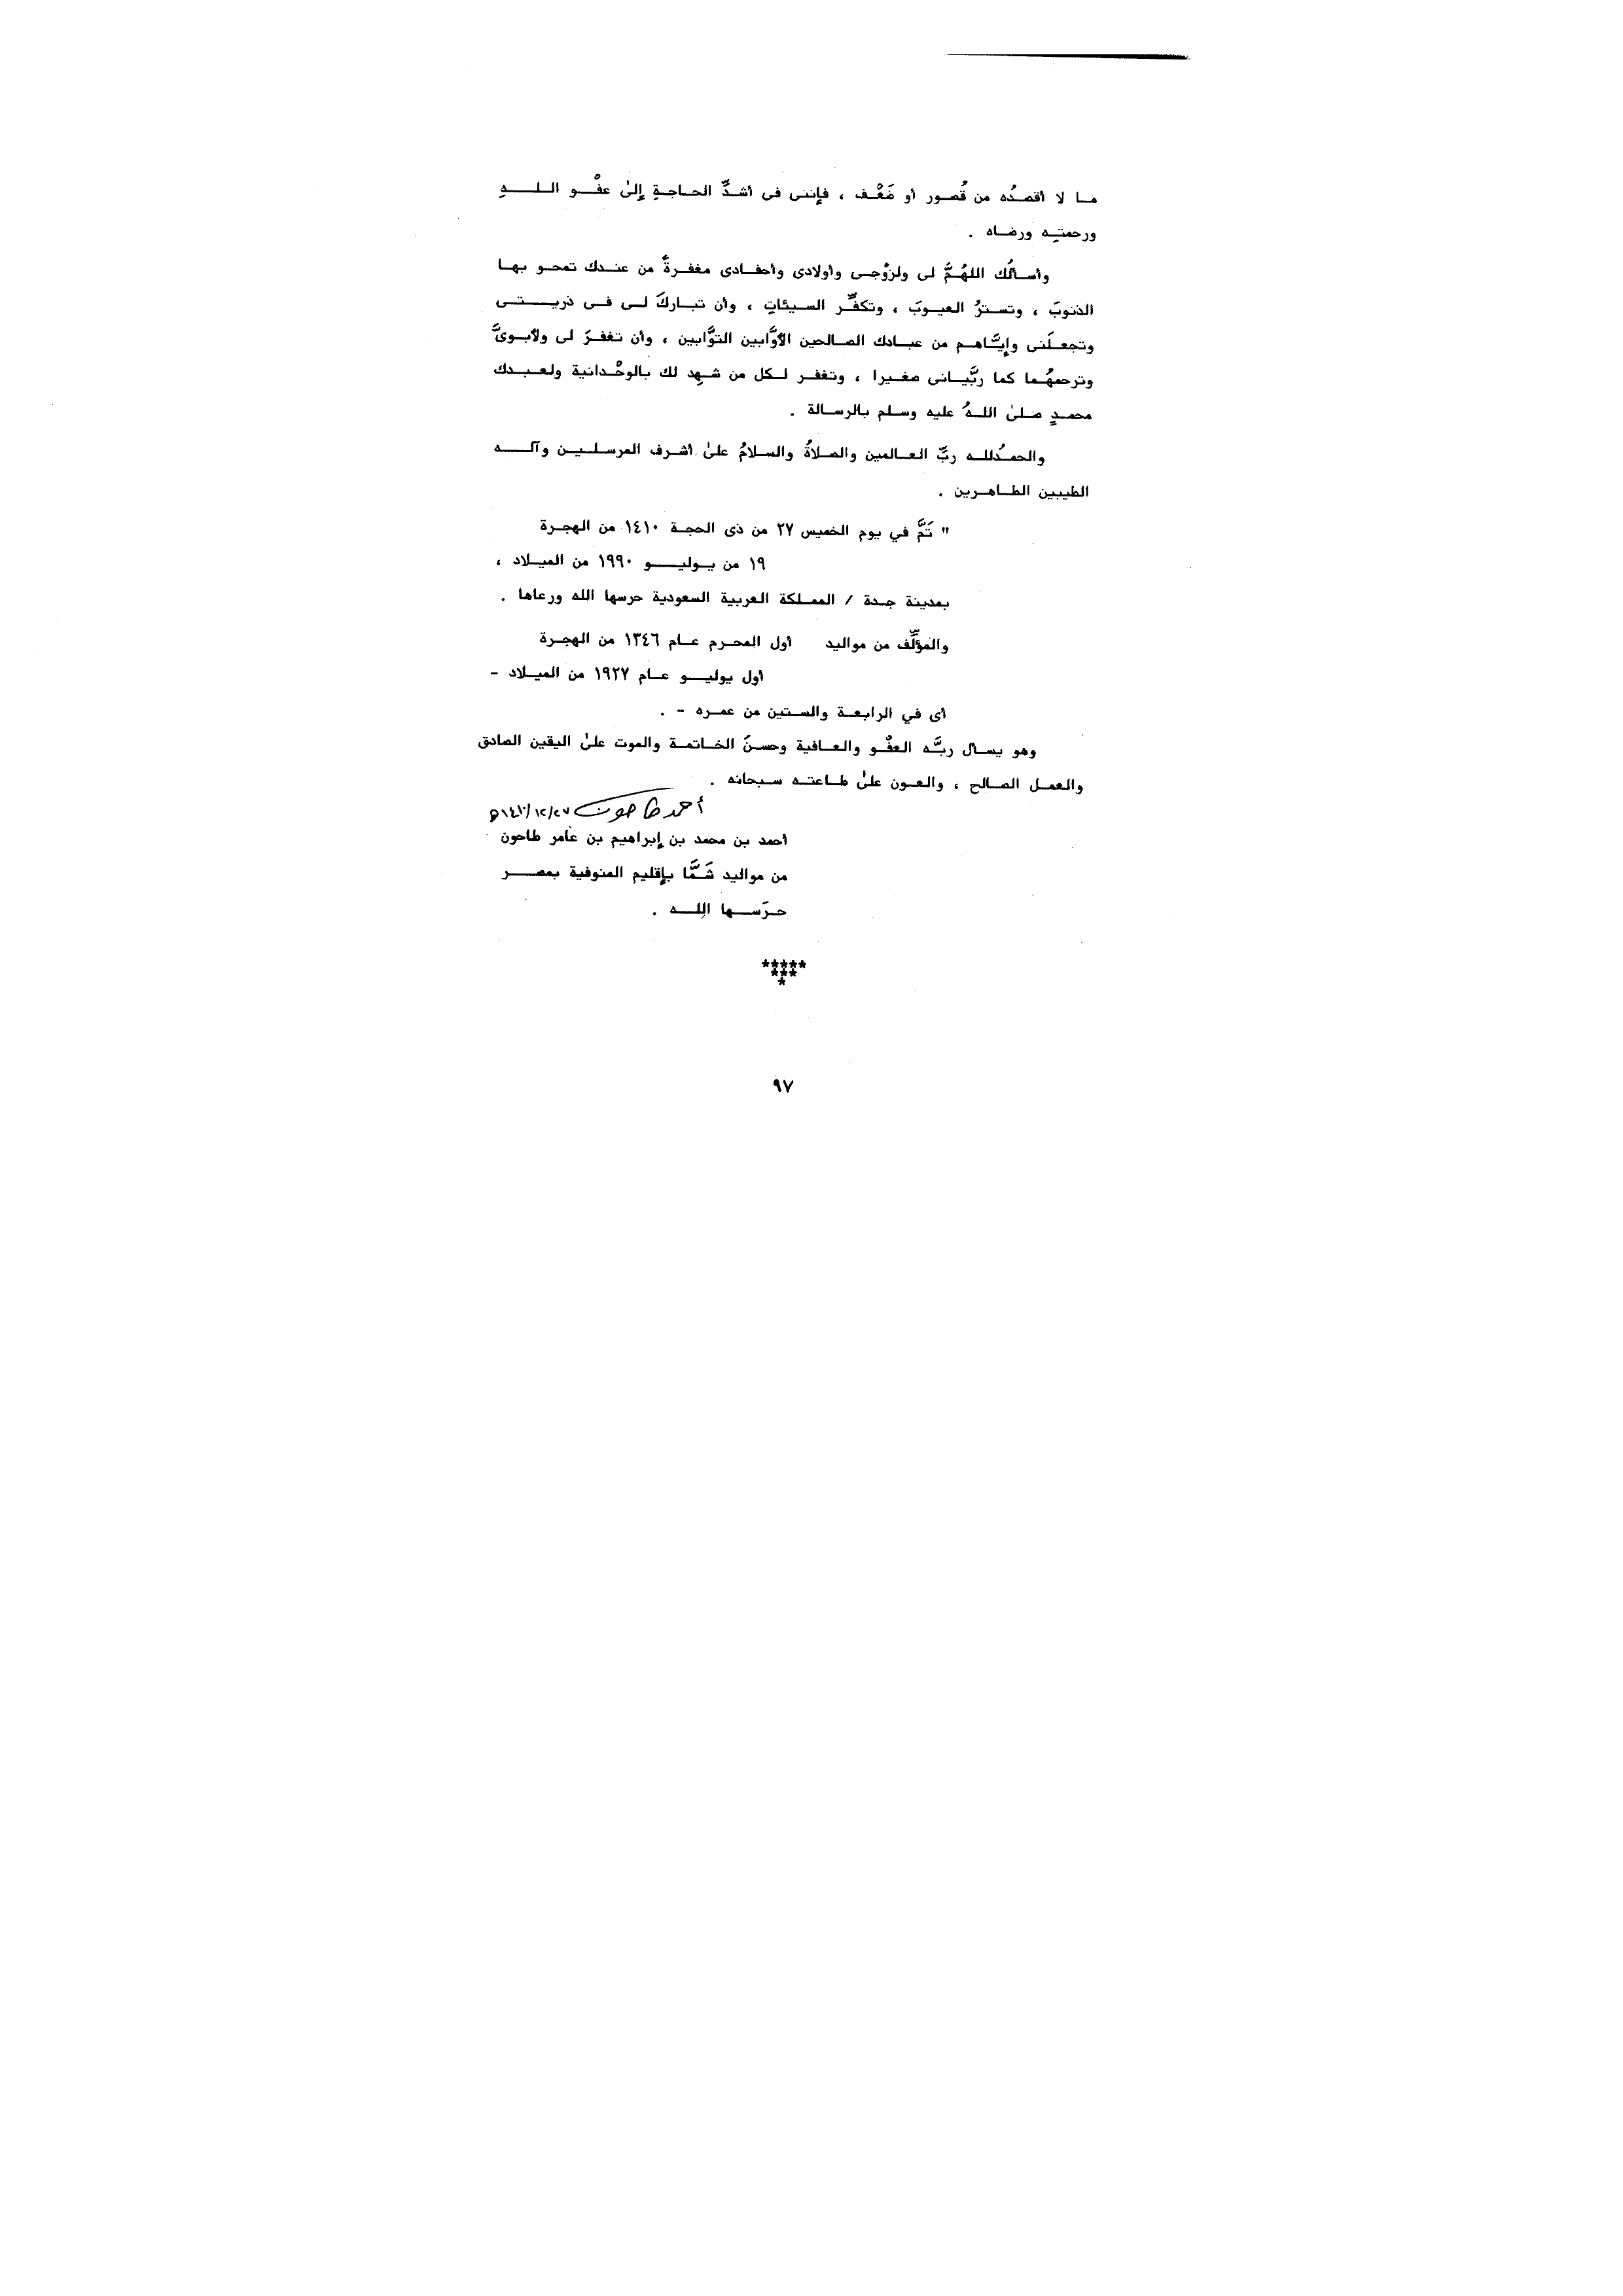 ما لا أقصدُه من قُصور أو ضَعْف ، فإننى فى أشدِّ الحاجةِ إلىٰ عفْو اللهِ
ورحمتِه ورضاه .
وأسألُك اللهُمَّ لى ولزوْجى وأولادى وأحفادى مغفرةً من عندك تمحو بها
الذنوبَ ، وتسترُ العيوبَ ، وتكفِّر السيئاتِ ، وأن تباركَ لى فى ذريتى
وتجعلَنى وإيَّاهم من عبادك الصالحين الأوَّابين التوَّابين ، وأن تغفرَ لى ولأبوىَّ
وترحمهُما كما ربَّيانى صغيرا ، وتغفر لكل من شهِد لك بالوحْدانية ولعبدك
محمدٍ صلىٰ اللهُ عليه وسلم بالرسالة .
والحمدُلله ربِّ العالمين والصلاةُ والسلامُ علىٰ أشرف المرسلين وآله
الطيبين الطاهرين .
" تَمَّ في يوم الخميس ٢٧ من ذى الحجة ١٤١٠ من الهجرة
١٩ من يوليو ١٩٩٠ من الميلاد ،
بمدينة جدة / المملكة العربية السعودية حرسها الله ورعاها .
والمؤلِّف من مواليد أول المحرم عام ١٣٤٦ من الهجرة
أول يوليو عام ١٩٢٧ من الميلاد -
أى في الرابعة والستين من عمره - .
وهو يسأل ربَّه العفْو والعافية وحسنَ الخاتمة والموت علىٰ اليقين الصادق
والعمل الصالح ، والعون علىٰ طاعته سبحانه .
أحمد طاحون ١٤١٠/١٢/٢٧ه
أحمد بن محمد بن إبراهيم بن عامر طاحون
من مواليد شَمَّا بإقليم المنوفية بمصر
حرَسها الله .
*****
***
*
٩٧